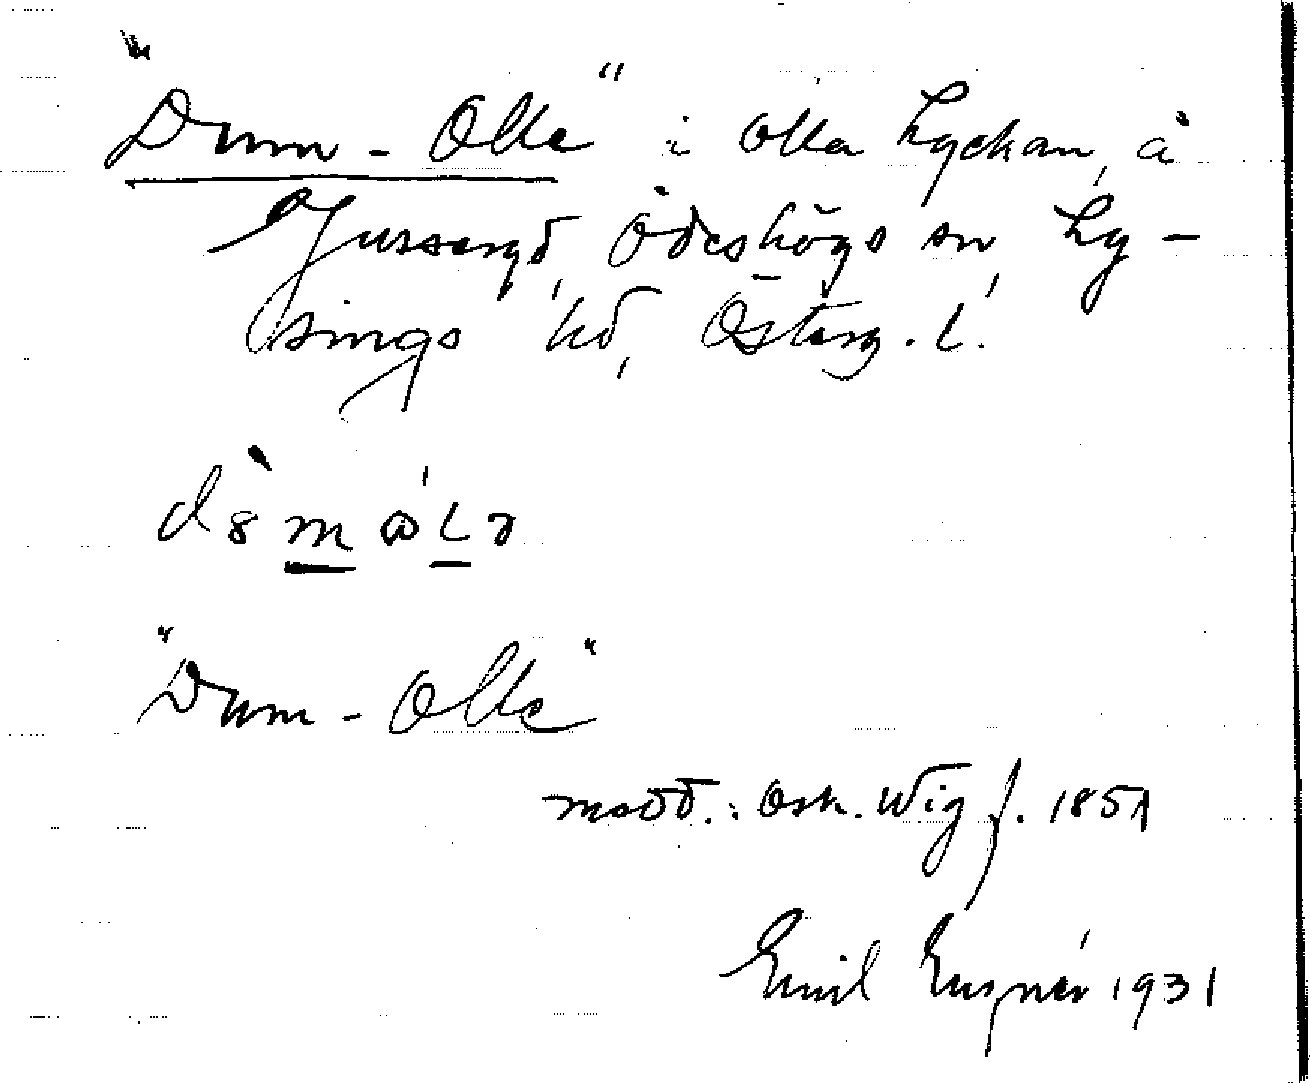 "Dum-Olle" i Olla Lyckan, å
Jussergd, Ödeshögs sn, Ly-
sings hd, Österg. l.
"Dum-Olle"
medd.: Osk. Wig f. 1851
Emil 1931